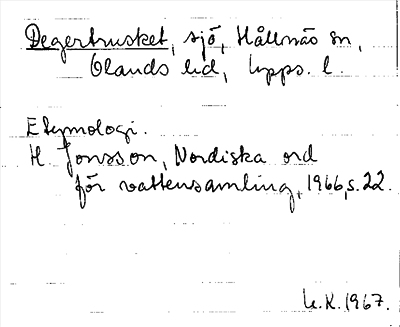 Degertrusket, sjö, Hållnäs sn,
Olands hd, Upps. l.
Etymologi.
H. Jonsson, Nordiska ord
för vattensamling, 1966, s. 22.
U.K. 1967.